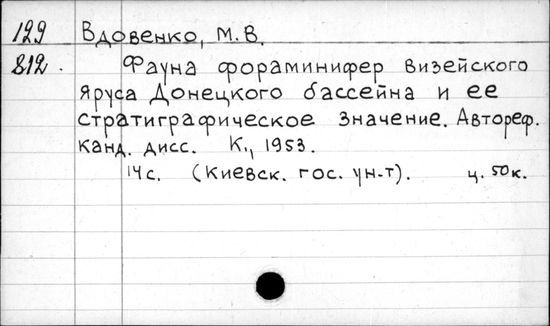 129 Вдовенко, М.В.
812. Фауна фораминифер визейского
яруса Донецкого бассейна и ее
стратиграфическое значение. Автореф.
канд. дисс. К., 1953.
14 с. (Киевск. гос. ун-т). ц. 50 к.